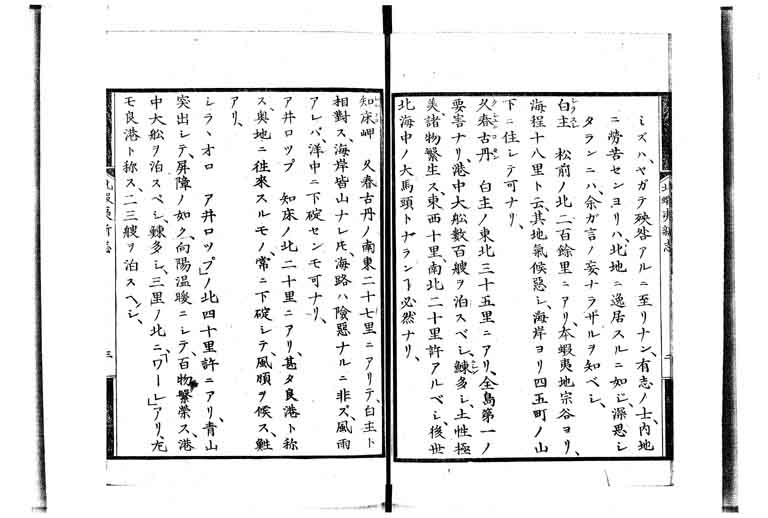 ミズハ、ヤガテ殃咎アルニ至リナン、有志ノ士、内地
ニ勞苦センヨリハ、北地ニ逸居スルニ如ジ、深思シ
タランニハ、余ガ言ノ妄ナラザルヲ知ベシ、
白主 松前ノ北二百餘里ニアリ、本蝦夷地宗谷ヨリ、
海程十八里ト云、其地氣候惡シ、海岸ヨリ四五町ノ山
下ニ住シテ可ナリ、
久春古丹 白主ノ東北三十五里ニアリ、全島第一ノ
要害ナリ、港中大舩數百艘ヲ泊スベシ、鰊多シ、土性極
美、諸物繁生ス、東西十里、南北二十里許アルベシ、後世
北海中ノ大馬頭トナランヿ必然ナリ、
北蝦夷新志
二
知床岬 久春古丹ノ南東二十七里ニアリテ、白主ト
相對ス、海岸皆山ナレ𪜈、海路ハ險惡ナルニ非ズ、風雨
アレバ、洋中ニ下碇センモ可ナリ、
ア井ロツプ 知床ノ北二十里ニアリ、甚タ良港ト称
ス、奥地ニ往來スルモノ、常ニ下碇シテ、風順ヲ候ス、鮭
アリ、
シラヽオロ ア井ロツプノ北四十里許ニアリ、青山
突出シテ、屏障ノ如ク、向陽温暖ニシテ、百物繁榮ス、港
中大舩ヲ泊スベシ、鰊多シ、三里ノ北ニ「ワーレ」アリ、尤
モ良港ト称ス、二三艘ヲ泊スヘシ、
北蝦夷新志
三